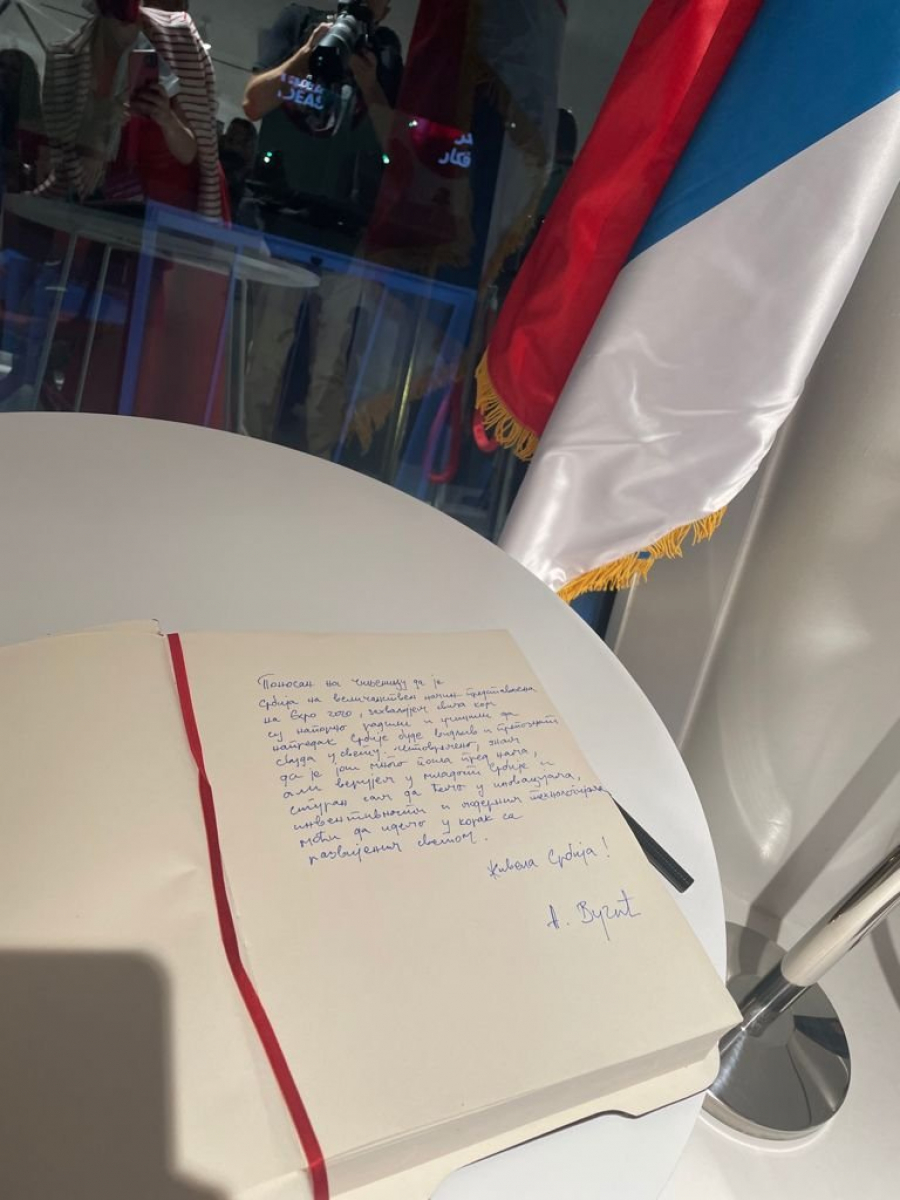 IDEAS
Поносан на чињеницу да је
Србија на величанствен начин представљена
на Експо 2020, захваљујем свима који
су напорно радили и учинили да
напредак Србије буде видљив и препознат
свуда у свету. Истовремено, знам
да је још много посла пред нама,
али верујем у младост Србије и
сигуран сам да ћемо у иновацијама,
инвентивности и модерним технологијама
моћи да идемо у корак са
развијеним светом.
Живела Србија!
А. Вучић